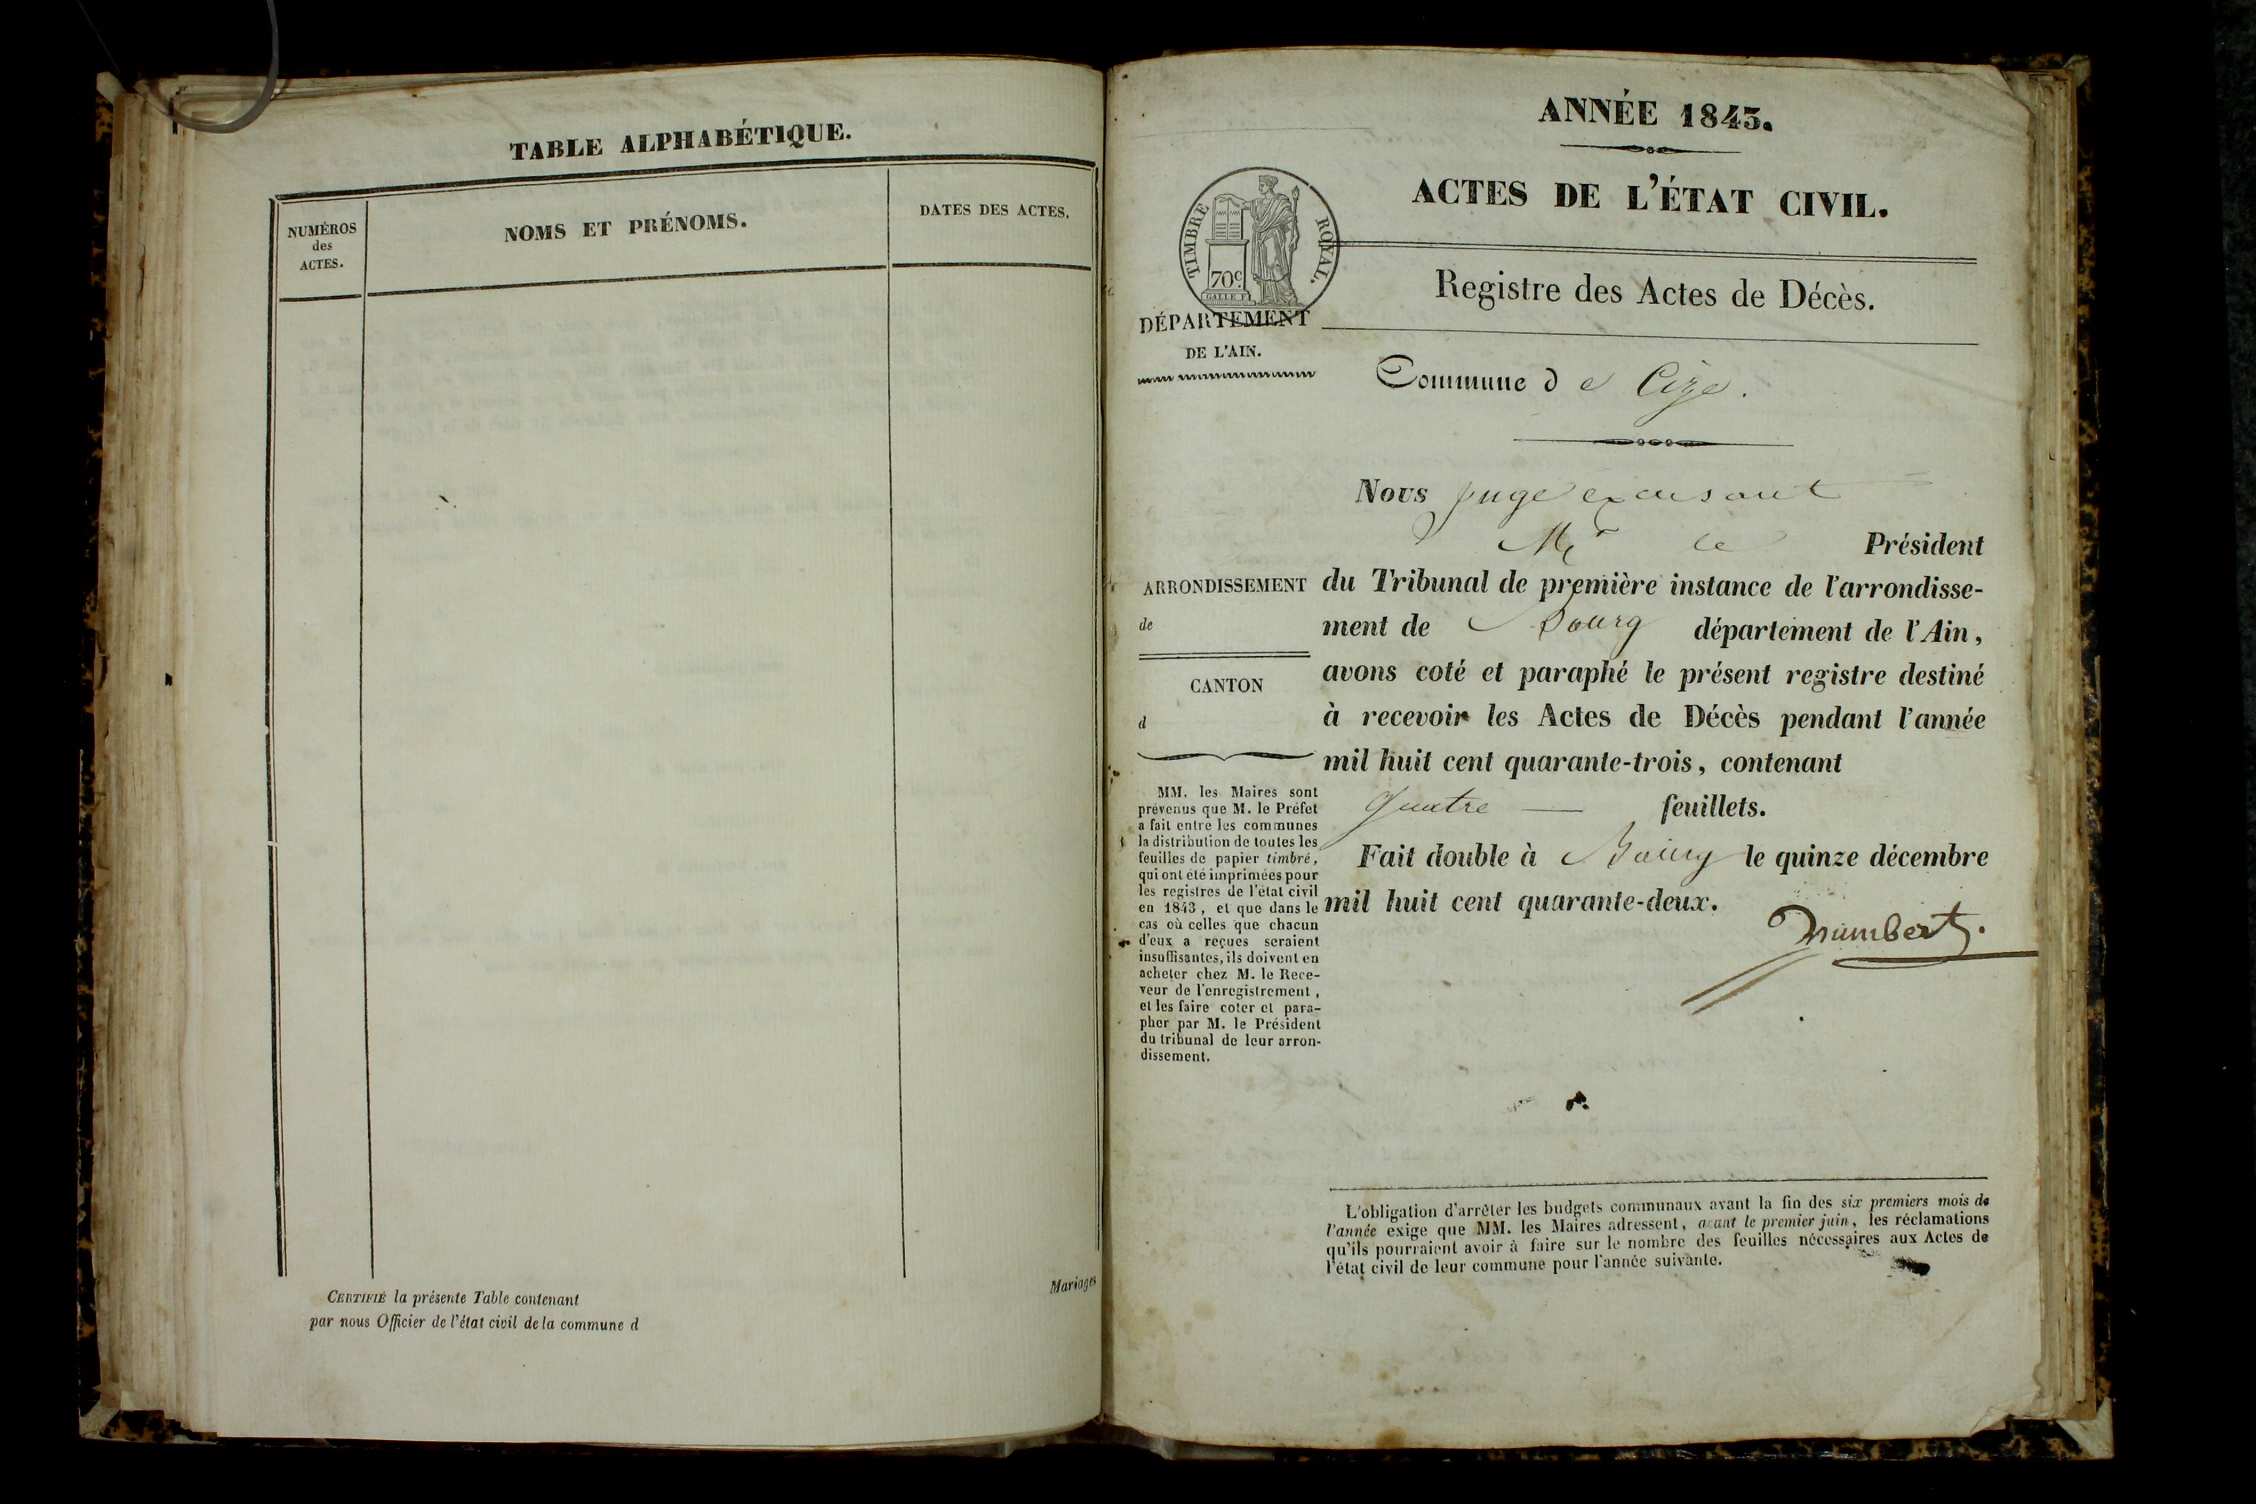 TABLE ALPHABÉTIQUE.
NUMÉROS
des
ACTES.
NOMS ET PRÉNOMS.
DATES DES ACTES.
CERTIFIÉ la présente Table contenant
par nous Officier de l'état civil de la commune d
Mariages
ANNÉE 1843.
ACTES DE L'ÉTAT CIVIL.
TIMBRE ROYAL.
70c
GALLE F.
Registre des Actes de Décès.
DÉPARTEMENT
DE L'AIN.
Commune de Cize.
Nous juge excusant
Mr le Président
ARRONDISSEMENT
de
CANTON
d
du Tribunal de première instance de l'arrondisse-
ment de Bourg département de l'Ain,
avons coté et paraphé le présent registre destiné
à recevoir les Actes de Décès pendant l'année
mil huit cent quarante-trois, contenant
quatre — feuillets.
Fait double à Bourg le quinze décembre
mil huit cent quarante-deux.
MM. les Maires sont
prévenus que M. le Préfet
a fait entre les communes
la distribution de toutes les
feuilles de papier timbré,
qui ont été imprimées pour
les registres de l'état civil
en 1843, et que dans le
cas où celles que chacun
d'eux a reçues seraient
insuffisantes, ils doivent en
acheter chez M. le Rece-
veur de l'enregistrement,
et les faire coter et para-
pher par M. le Président
du tribunal de leur arron-
dissement.
L'obligation d'arrêter les budgets communaux avant la fin des six premiers mois de
l'année exige que MM. les Maires adressent, avant le premier juin, les réclamations
qu'ils pourraient avoir à faire sur le nombre des feuilles nécessaires aux Actes de
l'état civil de leur commune pour l'année suivante.